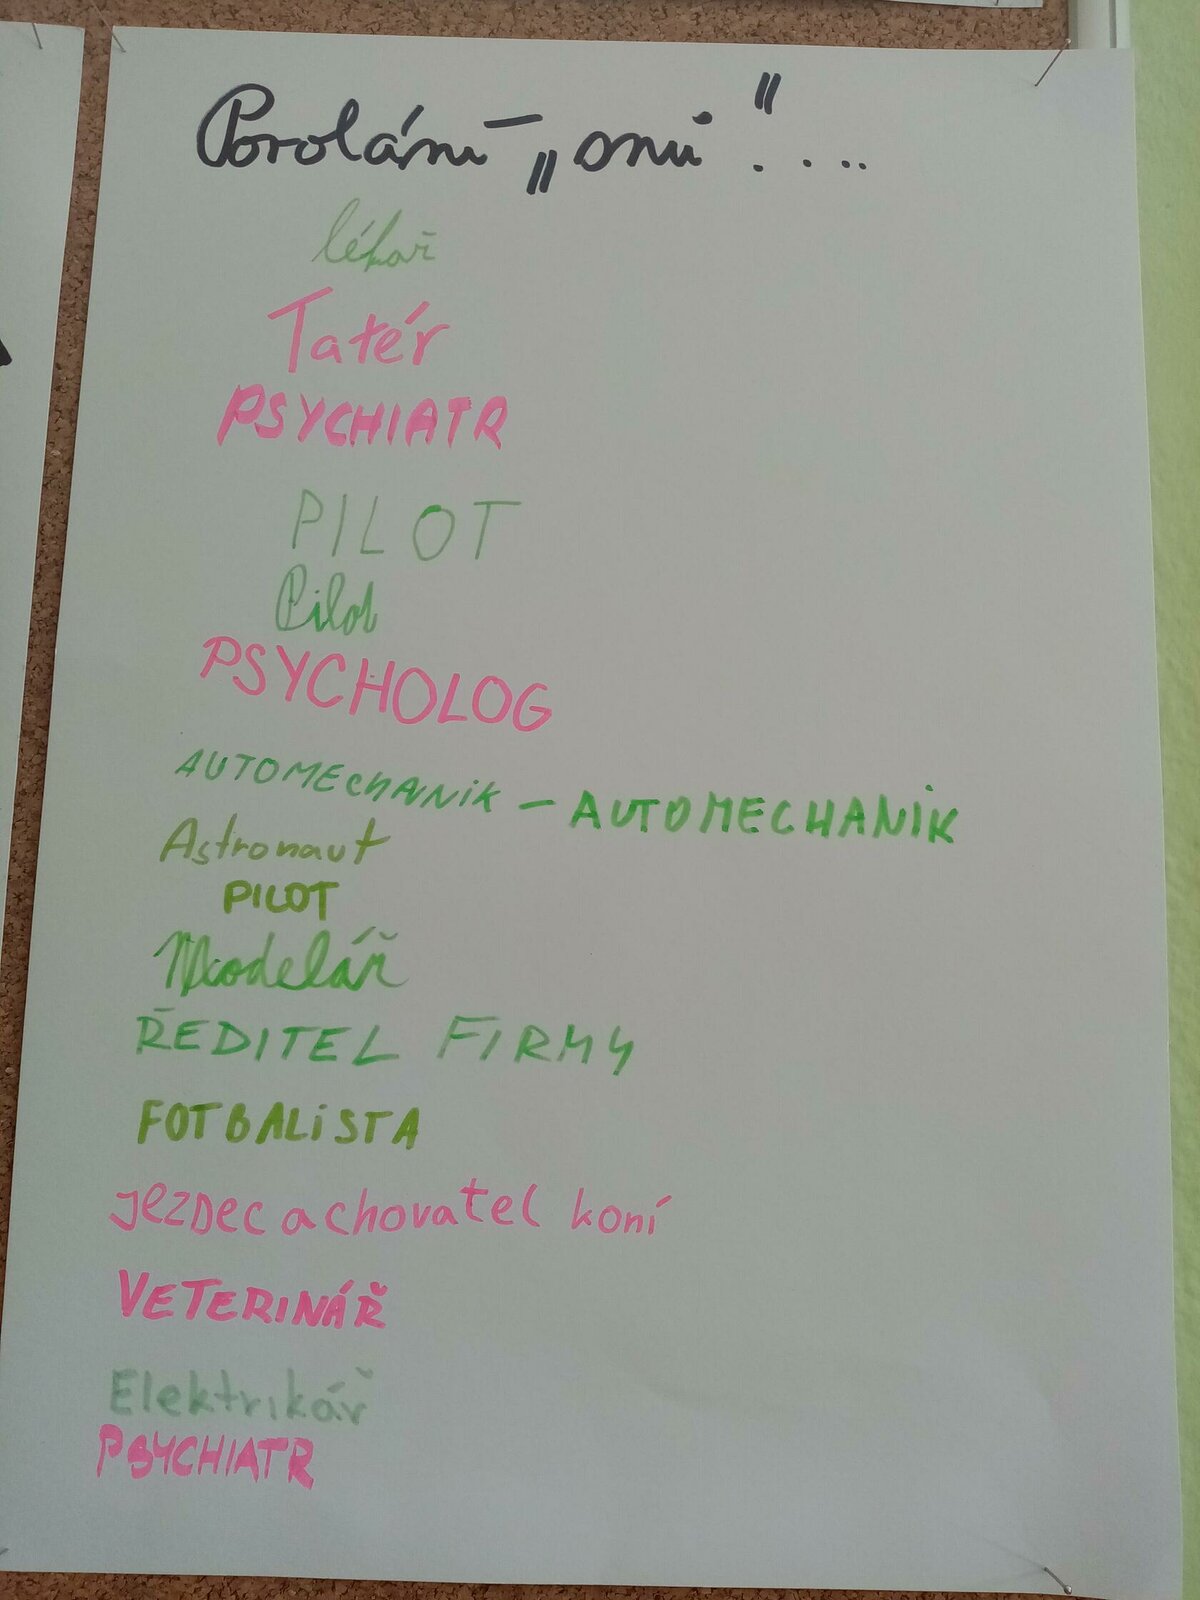 Povolání – „snů“....
lékař
Tatér
PSYCHIATR
PILOT
Pilot
PSYCHOLOG
AUTOMECHANIK – AUTOMECHANIK
Astronaut
PILOT
Modelář
ŘEDITEL FIRMY
FOTBALiSTA
JEZDEC a chovatel koní
VETERINÁŘ
Elektrikář
PSYCHIATR